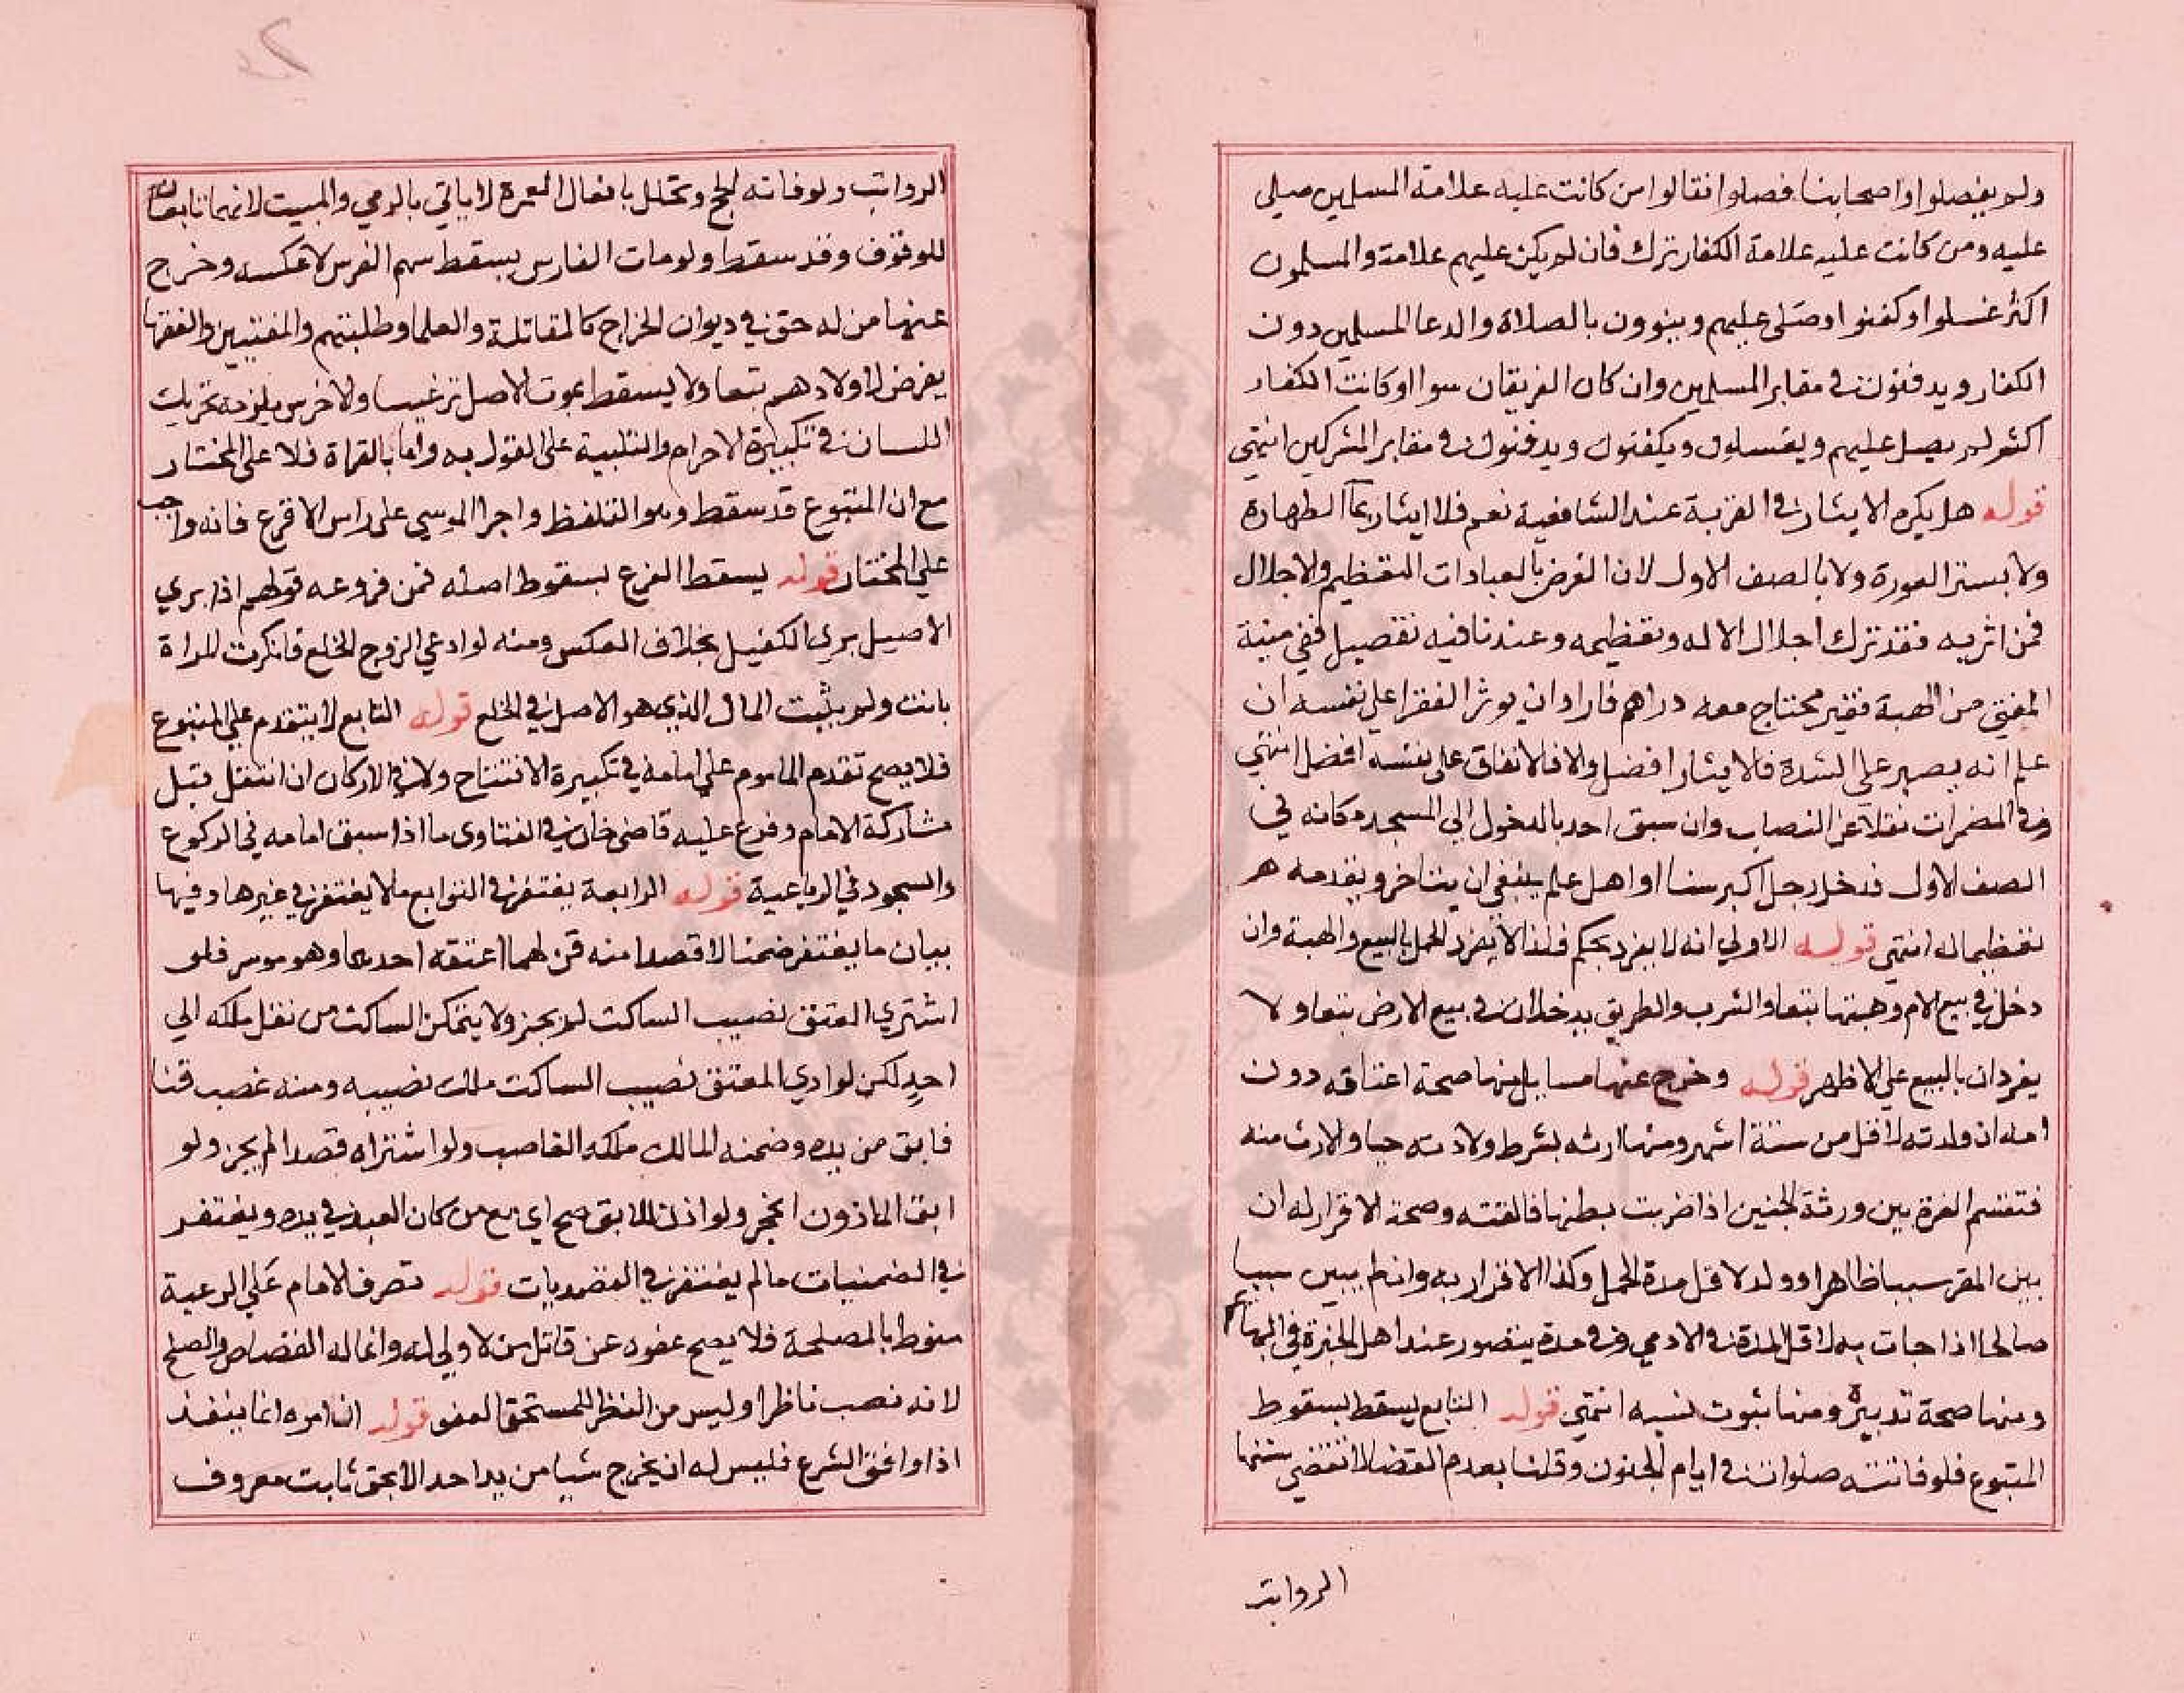 ولم يفصلوا واصحابنا فصلوا فقالوا من كانت عليه علامة المسلمين صلي
عليه ومن كانت عليه علامة الكفار ترك فان لم يكن عليهم علامة والمسلمون
اكثر غسلوا وكفنوا وصلى عليهم وينوون بالصلاة والدعا المسلمين دون
الكفار ويدفنون في مقابر المسلمين وان كان الفريقان سوا او كانت الكفار
اكثر لم يصل عليهم ويغسلون ويكفنون ويدفنون في مقابر المشركين انتهي
قوله هل يكره الايثار في القربة عند الشافعية نعم فلا ايثار بمآ الطهارة
ولا بستر العورة ولا بالصف الاول لان الغرض بالعبادات التعظيم والاجلال
فمن اثر به فقد ترك اجلال الاله وتعظيمه وعندنا فيه تفصيل ففي منية
المفتي من الهبة فقير محتاج معه دراهم فاراد ان يوثر الفقرا على نفسه ان
علم انه يصبر على الشدة فالايثار افضل والا فالانفاق على نفسه افضل انتهي
وفي المضمرات نقلا عن النصاب وان سبق احد بالدخول الي المسجد مكانه في
الصف الاول فدخل رجل اكبر سنا او اهل علم ينبغي ان يتاخر ويقدمه هر
تعظيما له انتهي قوله الاولي انه لا يفرد بحكم فلذا لا يفرد الحمل بالبيع والهبة وان
دخل في بيع الام وهبتها تبعا والشرب والطريق يدخلان في بيع الارض تبعا ولا
يفردان بالبيع علي الاظهر قوله وخرج عنها مسايل منها صحة اعتاقه دون
امه ان ولدته لاقل من ستة اشهر ومنها ارثه بشرط ولادته حيا والارث منه
فتقسم الغرة بين ورثة الجنين اذا ضربت بطنها فالقته وصحة الاقرار له ان
بين المقر سببا ظاهرا وولد لاقل مدة الحمل وكذا الاقرار به وان لم يبين سببا
صالحا اذا جات به لاقل المدة في الادمي وفي مدة يتصور عند اهل الخبرة في البهائم
ومنها صحة تدبيره ومنها ثبوت نسبه انتهي قوله التابع يسقط بسقوط
المتبوع فلو فاتته صلوات في ايام الجنون وقلنا بعدم القضا لا تقضي سننها
الرواتب
الرواتب ولو فاته الحج وتحلل بافعال العمرة لا ياتي بالرمي والمبيت لانهما تابعان
للوقوف وقد سقط ولو مات الفارس يسقط سهم الفرس لا عكسه وخرج
عنها من له حق في ديوان الخراج كالمقاتلة والعلما وطلبتهم والمفتيين والفقها
يفرض لاولادهم تبعا ولا يسقط بموت الاصل ترغيبا والاخرس يلزمه تحريك
اللسان في تكبيرة الاحرام والتلبية على القول به واما بالقراة فلا على المختار
مع ان المتبوع قد سقط وهو التلفظ واجرا الموسي على راس الاقرع فانه واجب
علي المختار قوله يسقط الفرع بسقوط اصله فمن فروعه قولهم اذا بري
الاصيل بري الكفيل بخلاف العكس ومنه لو ادعي الزوج الخلع فانكرت المراة
بانت ولم يثبت المال الذي هو الاصل في الخلع قوله التابع لا يتقدم علي المتبوع
فلا يصح تقدم الماموم علي امامه في تكبيرة الافتتاح ولا في الاركان ان انتقل قبل
مشاركة الامام وفرع عليه قاضي خان في الفتاوى ما اذا سبق امامه في الركوع
والسجود في الرباعية قوله الرابعة يغتفر في التوابع ما لا يغتفر في غيرها وفيها
بيان ما يغتفر ضمنا لا قصدا منه قن لهما اعتقه احدهما وهو موسر فلو
اشتري المعتق نصيب الساكت لم يجز ولا يتمكن الساكت من نقل ملكه الي
احد لكن لو ادي المعتق نصيب الساكت ملك نصيبه ومنه غصب قنا
فابق من يده وضمنه المالك ملكه الغاصب ولو اشتراه قصدا لم يجز ولو
ابق الماذون انحجر ولو اذن للابق صح اي مع من كان العبد في يده ويغتفر
في الضمنيات ما لم يغتفر في القصديات قوله تصرف الامام علي الرعية
منوط بالمصلحة فلا يصح عفوه عن قاتل من لا ولي له وانما له القصاص والصلح
لانه نصب ناظرا وليس من النظر للمستحق العفو قوله ان امره انما ينفذ
اذا وافق الشرع فليس له ان يخرج شيا من يد احد الا بحق ثابت معروف